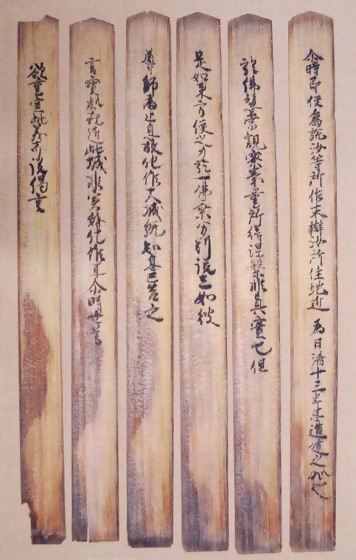 尒時即便為說汝等所作未辦汝所住地近 為日清十三年
於佛慧當觀察籌量所得涅槃非真實也但
是如来方便之力於一佛乗分別説三如彼
導師為止息故化作大城既知息已告之
言寳處在近此城非實我化作耳尒時世尊
欲重宣此義而説偈言